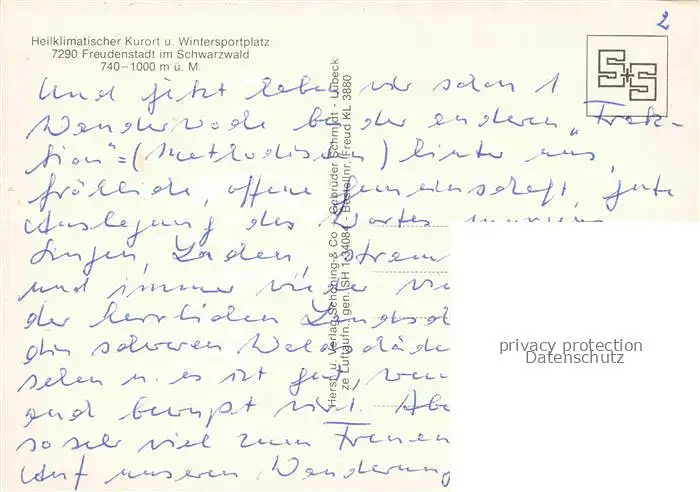 2
Heilklimatischer Kurort u. Wintersportplatz
7290 Freudenstadt im Schwarzwald
740–1000 m ü. M.
S+S
Und jetzt haben wir schon 1
Wanderwoche bei der anderen „Frak-
tion" = (Methodisten) hinter uns,
fröhliche, offene Gemeinschaft, gute
Auslegung des Wortes morgens
Singen, Laden,
und immer wieder
der herrlichen
die schweren Waldschäden
sehen u. es ist gut, wenn
und bewußt wird. Aber
so sehr viel zum Freuen
Auf unseren Wanderung
Herst. u. Verlag Schöning & Co + Gebrüder Schmidt - Lübeck
ze Luftaufn. gen. SH 1-34084 Bestellnr. Freud KL 3880
privacy protection
Datenschutz